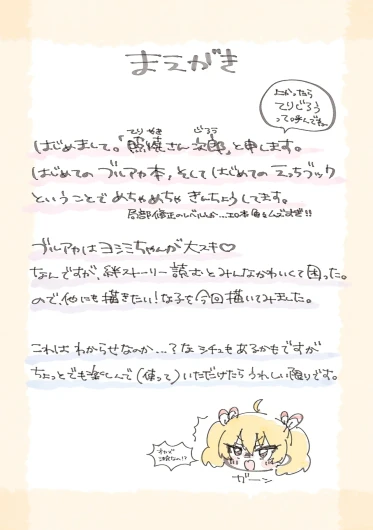 まえがき
よかったら
てりじろう
って呼んでね
てり やき じろう
はじめまして。「照焼さん次郎」と申します。
はじめての ブルアカ本、そして はじめての えっちブック
ということで めちゃめちゃ きんちょうしてます。
局部修正のレベルとか…エロ本ムズすぎ!!
ブルアカはヨシミちゃんが大スキ♡
なんですが、絆ストーリー読むとみんなかわいくて困った。
ので、他にも描きたい!な子を今回描いてみました。
これは わからせなのか…?な シチュもあるかもですが
ちょっとでも楽しんで(使って)いただけたらうれしい限りです。
ガーン